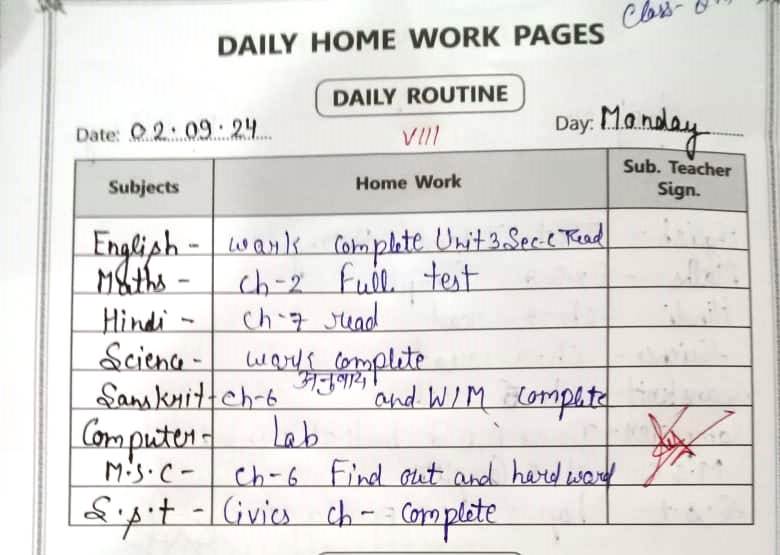 Class-
DAILY HOME WORK PAGES
DAILY ROUTINE
Date: 02.09.24 VIII Day: Monday
Subjects Home Work Sub. Teacher Sign.
English - work complete Unit 3 Sec-C Read
Maths - ch-2 Full test
Hindi - ch-7 read
Science - work complete
Sanskrit - ch-6 अनुवाद and W/M complete
Computer - Lab
M.S.C - ch-6 Find out and hard word
S.s.t - Civics ch- complete